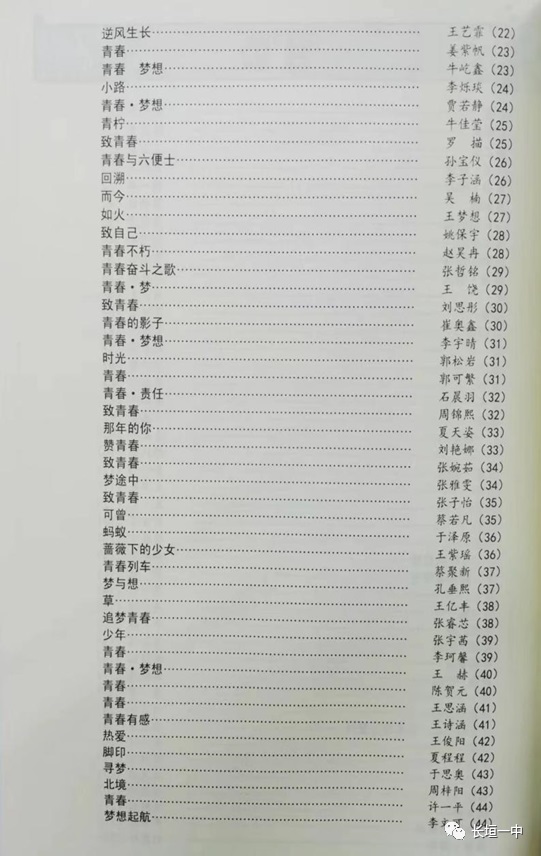 逆风生长……王艺霏（22）
青春……姜紫帆（23）
青春　梦想……牛屹鑫（23）
小路……李烁琰（24）
青春·梦想……贾若静（24）
青柠……牛佳莹（25）
致青春……罗　描（25）
青春与六便士……孙宝仪（26）
回溯……李子涵（26）
而今……吴　楠（27）
如火……王梦想（27）
致自己……姚保宇（28）
青春不朽……赵昊冉（28）
青春奋斗之歌……张哲铭（29）
青春·梦……王　饶（29）
致青春……刘思彤（30）
青春的影子……崔奥鑫（30）
青春·梦想……李宇晴（31）
时光……郭松岩（31）
青春……郭可繁（31）
青春·责任……石晨羽（32）
致青春……周锦熙（32）
那年的你……夏天姿（33）
赞青春……刘艳娜（33）
致青春……张婉茹（34）
梦途中……张雅雯（34）
致青春……张子怡（35）
可曾……蔡若凡（35）
蚂蚁……于泽原（36）
蔷薇下的少女……王紫瑶（36）
青春列车……蔡聚新（37）
梦与想……孔垂熙（37）
草……王亿丰（38）
追梦青春……张睿芯（38）
少年……张宇茜（39）
青春……李珂馨（39）
青春·梦想……王　赫（40）
青春……陈贺元（40）
青春……王思涵（41）
青春有感……王诗涵（41）
热爱……王俊阳（42）
脚印……夏程程（42）
寻梦……于思奥（43）
北境……周梓阳（43）
青春……许一平（44）
梦想起航……李（44）
长垣一中